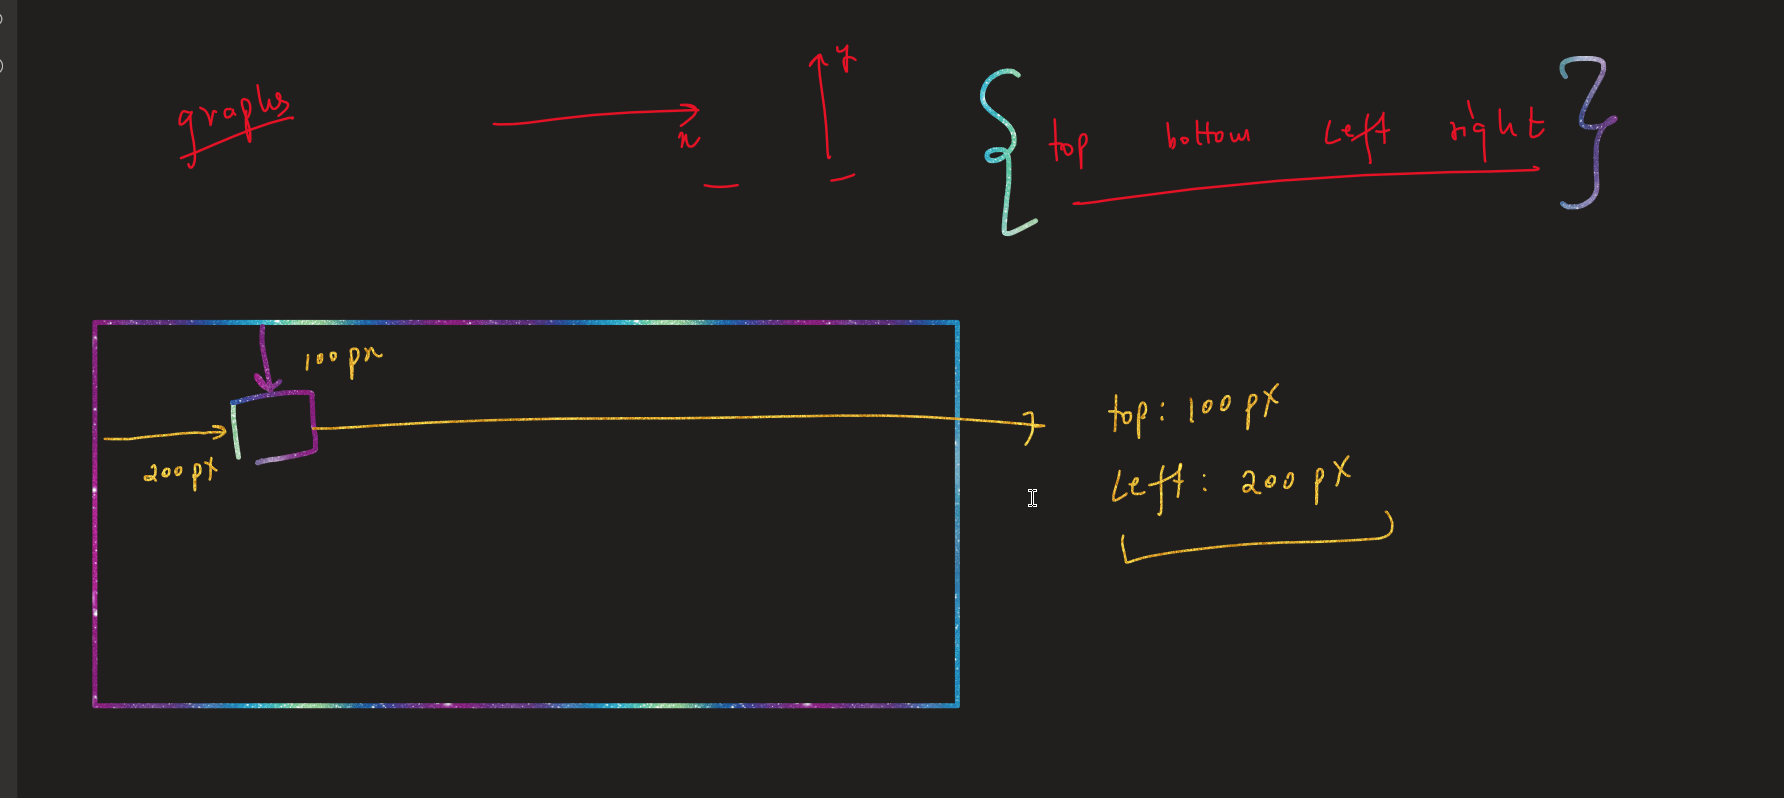 graphs
x
y
{ top bottom left right }
100 px
200 px
top: 100 px
Left: 200 px